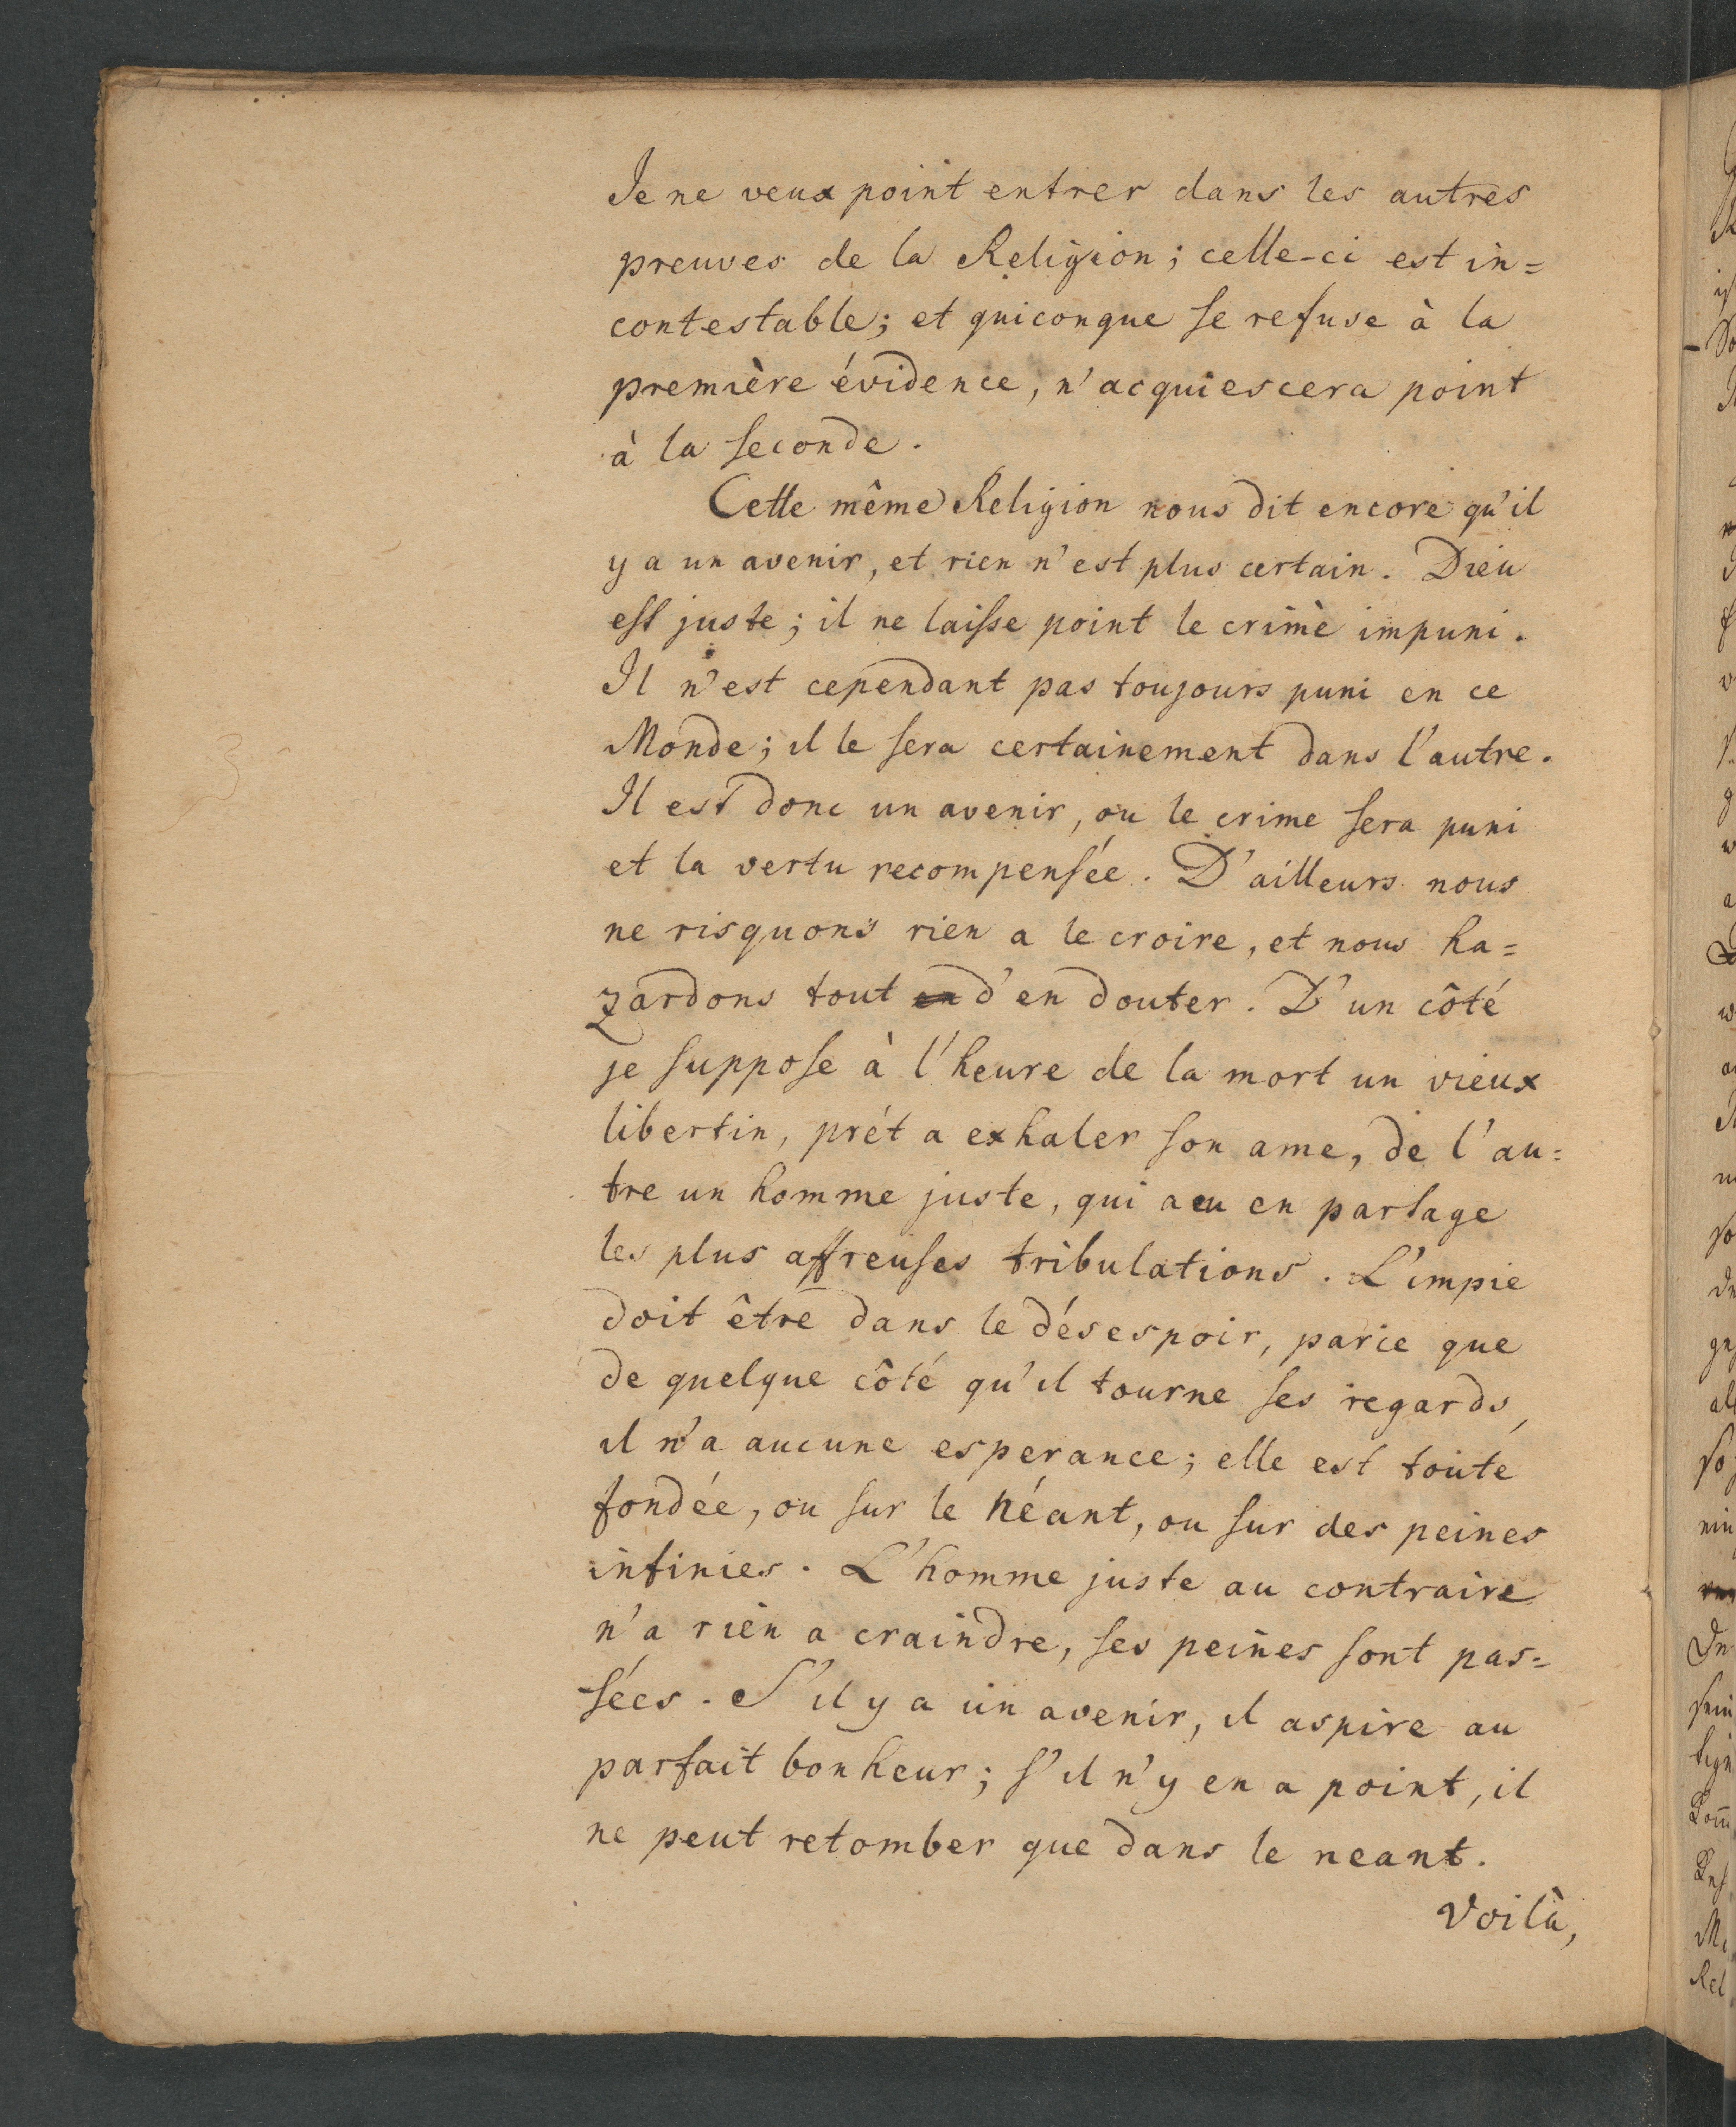 Je ne veux point entrer dans les autres
preuves de la Religion; celle-ci est in=
contestable; et quiconque se refuse à la
première évidence, n'acquiescera point
à la seconde.
Cette même Religion nous dit encore qu'il
y a un avenir, et rien n'est plus certain. Dieu
est juste; il ne laisse point le crime impuni.
Il n'est cependant pas toujours puni en ce
Monde; il le sera certainement dans l'autre.
Il est donc un avenir, ou le crime sera puni
et la vertu recompensée. D'ailleurs nous
ne risquons rien a le croire, et nous ha=
zardons tout en d'en douter. D'un côté
je suppose à l'heure de la mort un vieux
libertin, prét a exhaler son ame, de l'au=
tre un homme juste, qui a eu en partage
les plus affreuses tribulations. L'impie
doit être dans le désespoir, parce que
de quelque côté qu'il tourne ses regards,
il n'a aucune esperance; elle est toute
fondée, ou sur le Néant, ou sur des peines
infinies. L'homme juste au contraire
n'a rien a craindre, ses peines sont pas=
sées. S'il y a un avenir, il aspire au
parfait bonheur; s'il n'y en a point, il
ne peut retomber que dans le neant.
Voilà,